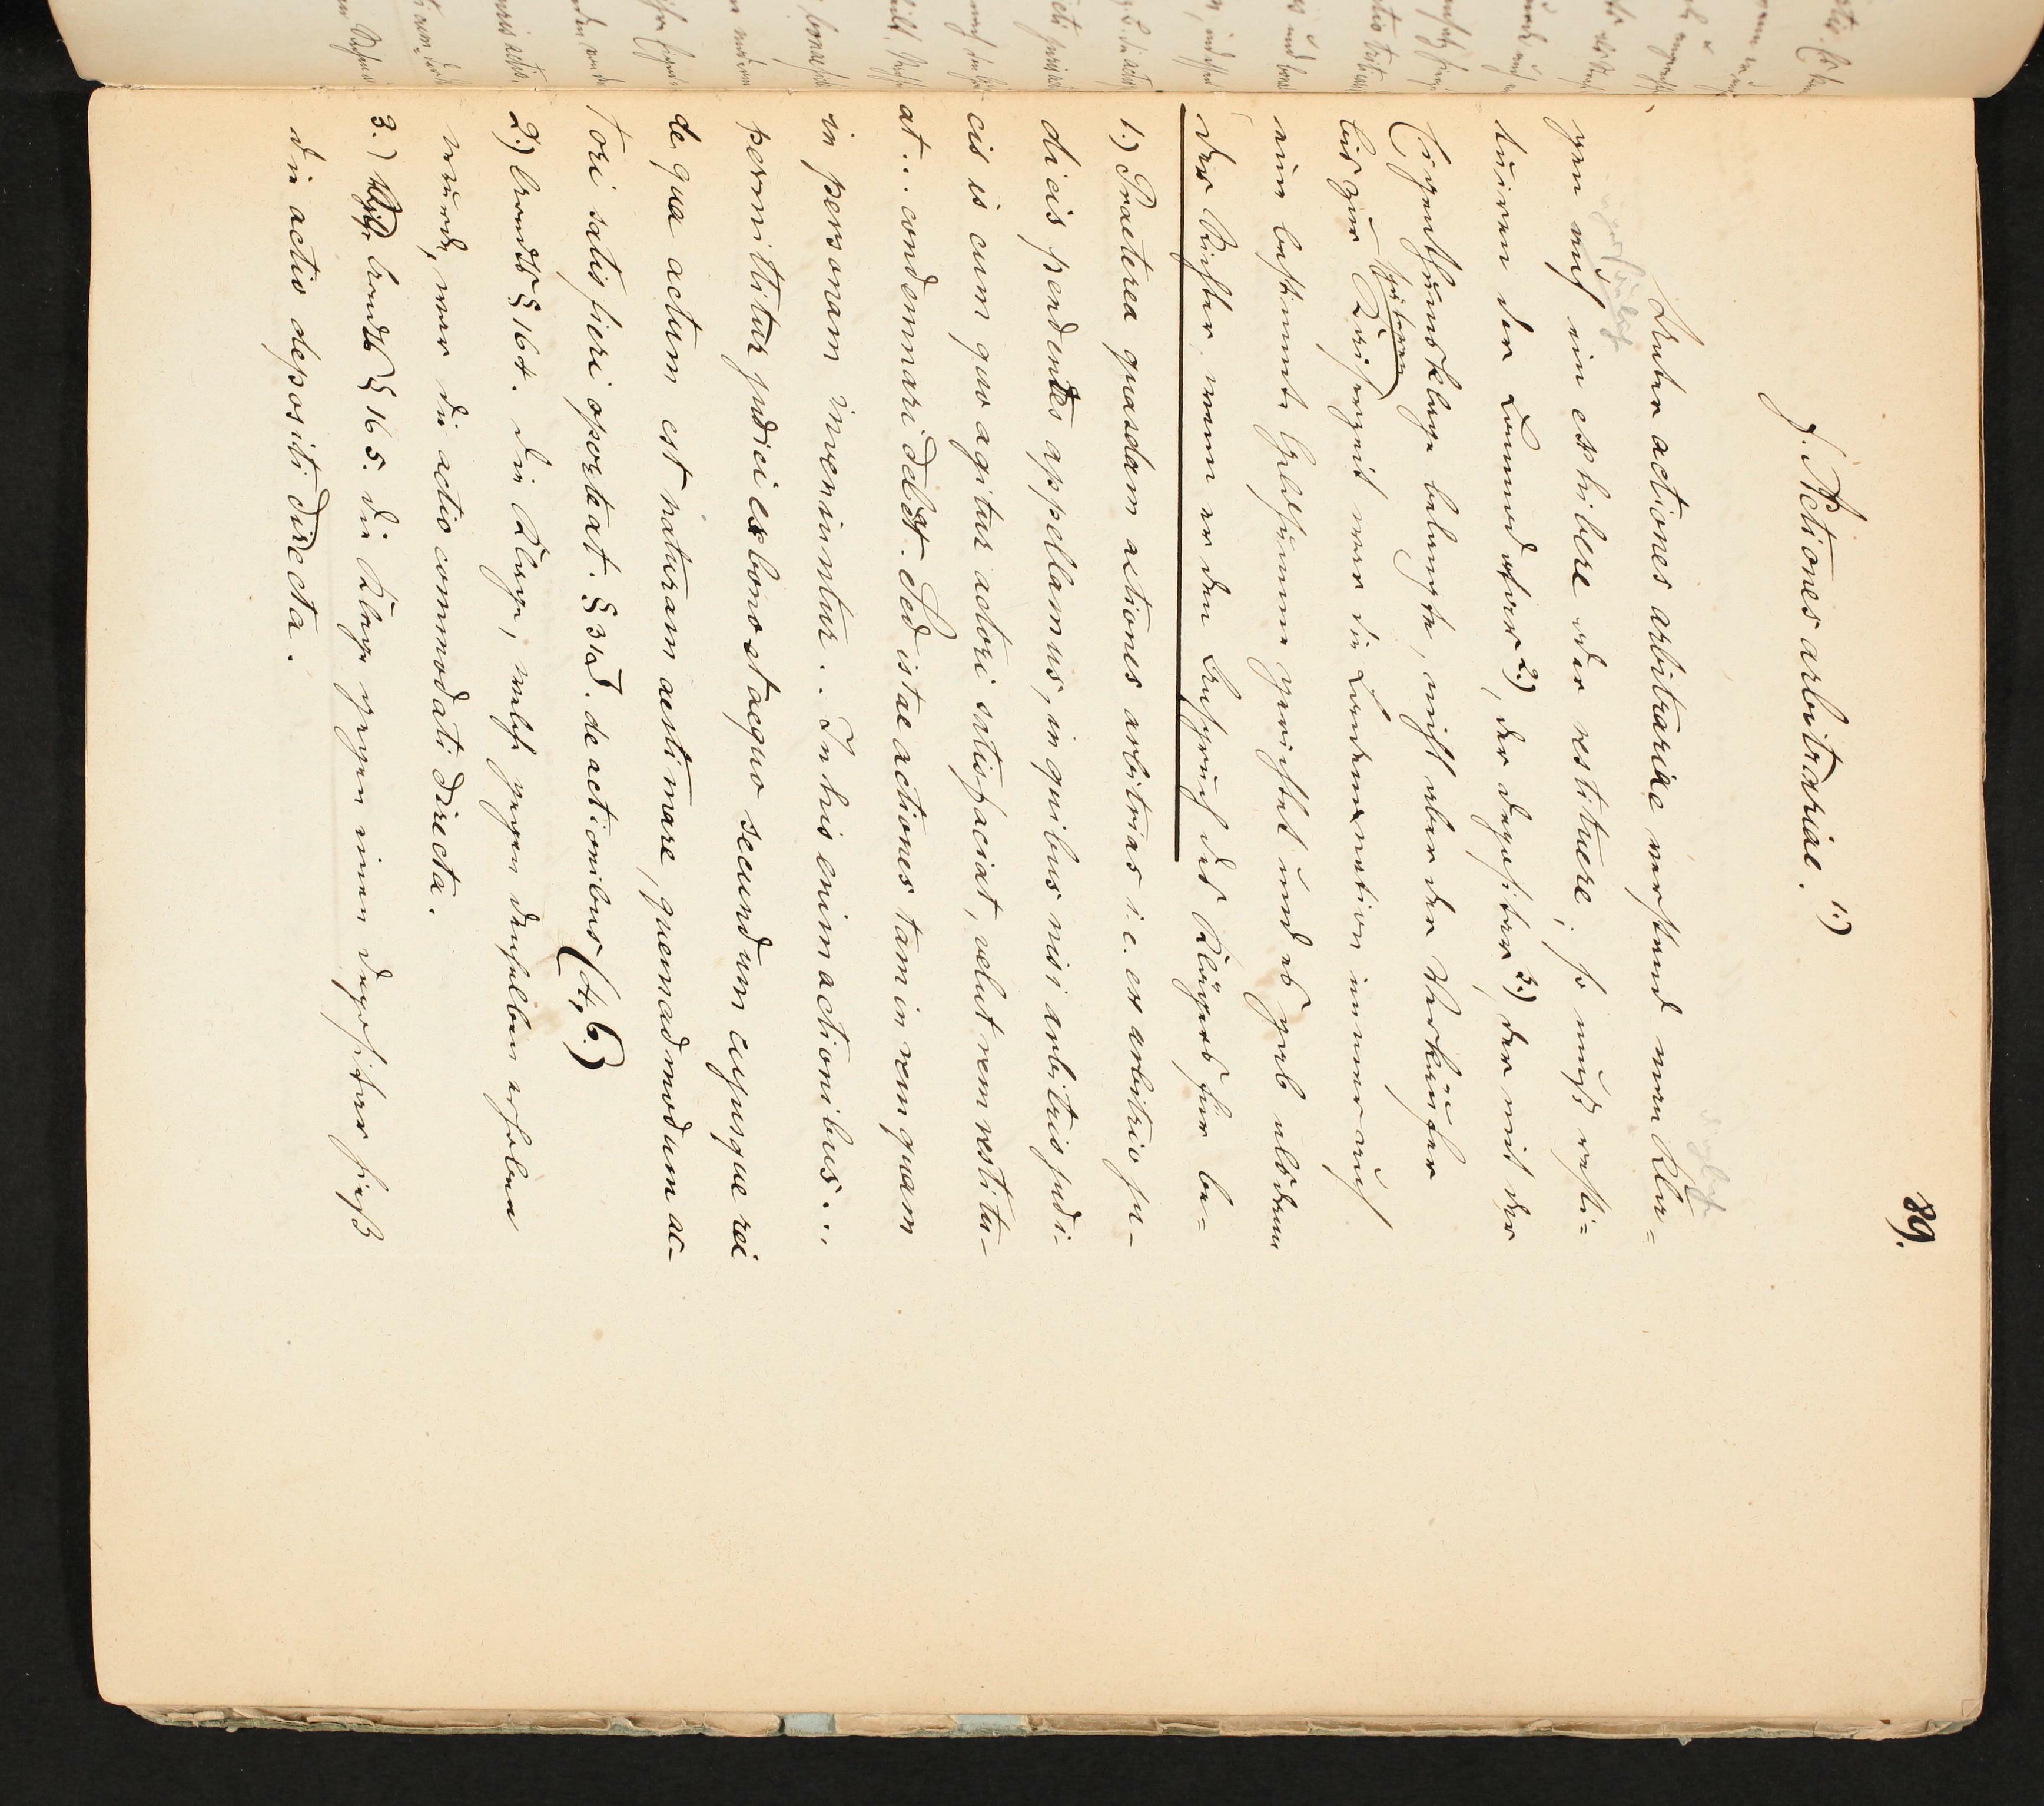 89.
f. Actiones arbitrariae. 1.)
Unter actiones arbitrariae verstand man Kla=
gen auf ein exhibere oder restituere; so muß resti=
tuiren der Commodatar 2.), der Depositar 3.), der mit der
Eigenthumsklage belangte, nicht aber der Verkäufer
bis zur späteren Kaiserzeit war die Condemnation immer auf
eine bestimmte Geldsumme gerichtet und es gab alsdann
der Richter, wenn er den Anspruch des Klägers für be=
1.) Praeterea quasdam actiones arbitrias i. e. ex arbitrio ju-
dicis pendentes appellamus, in quibus nisi arbitris judi-
cis is cum quo agitur actori satisfaciat, velut rem restitu-
at... condemnari debet. Sed istae actiones tam in rem quam
in personam inveniuntur... In his enim actionibus...
permittitur judici ex bono et aequo secundum cujusque rei
de qua actum est naturam aestimare, quemadmodum ac-
tori satisfieri oporteat. § 31 d. de actionibus (4, 6.)
2.) Arndts § 164. die Klage, welche gegen denselben erhoben
wurde, war die actio commodati directa.
3.) Arndts § 165. die Klage gegen einen Depositar hieß
die actio depositi directa.